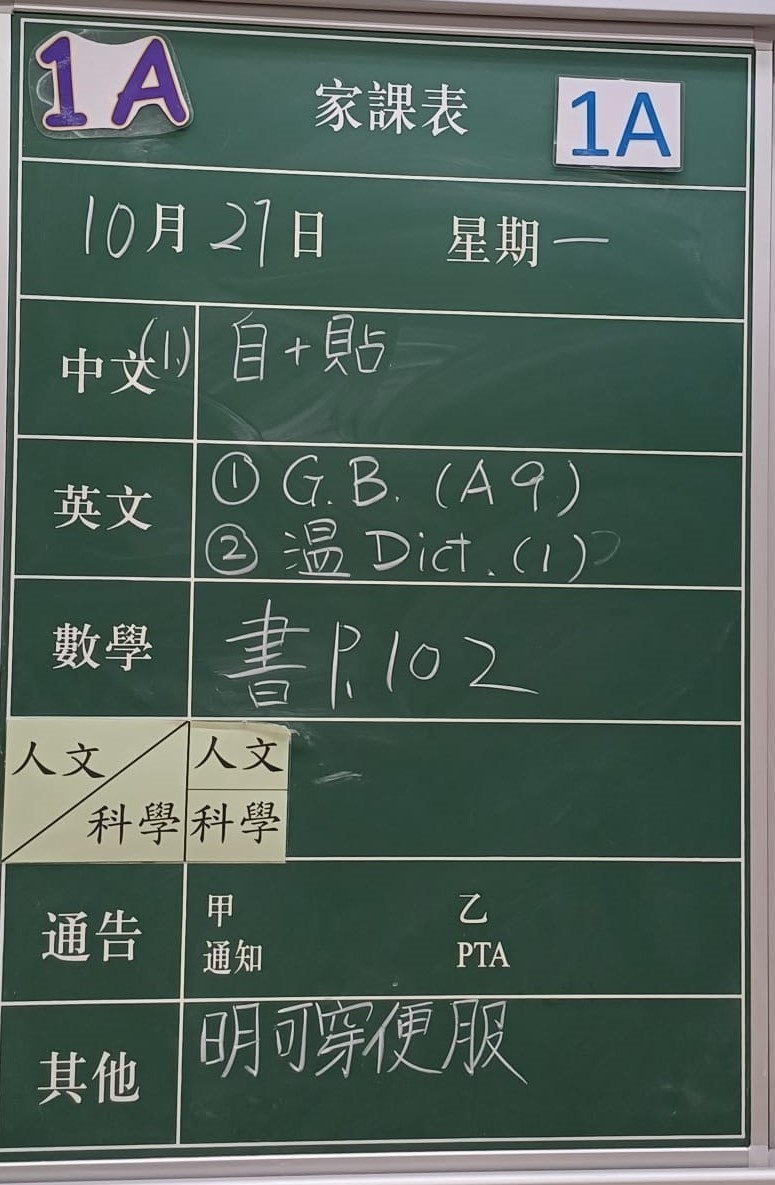 1A
家課表
1A
10月27日 星期一
中文(1) 自+貼
英文 ① G.B. (A9)
② 温 Dict. (1)
數學 書 P.102
人文
科學
人文
科學
通告 甲 乙
通知 PTA
其他 明可穿便服